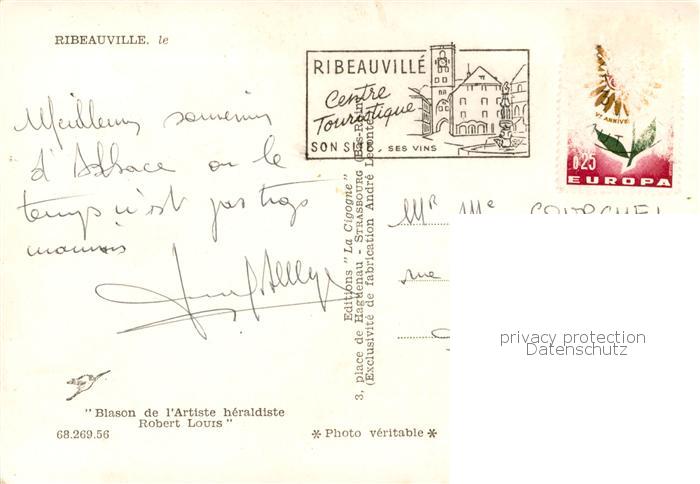 RIBEAUVILLE. le
RIBEAUVILLÉ
Centre
Touristique
SON SITE, SES VINS
Vᵉ ANNIVE
0,25
EUROPA
Meilleurs souvenirs
d'Alsace où le
temps n'est pas trop
mauvais
Mʳ Mᵉ
rue
Editions "La Cigogne"
3, place de Haguenau - STRASBOURG (Bas-Rhin)
(Exclusivité de fabrication André Leconte)
privacy protection
Datenschutz
"Blason de l'Artiste héraldiste
Robert LOUIS"
68.269.56
* Photo véritable *